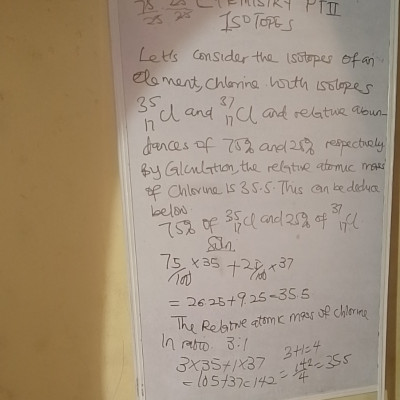 CHEMISTRY PT II
ISOTOPES
Let's consider the isotopes of an
element, Chlorine with isotopes
³⁵₁₇Cl and ³⁷₁₇Cl and relative abun-
dances of 75% and 25% respectively
By Calculation, the relative atomic mass
of Chlorine is 35.5. This can be deduce
below.
75% of ³⁵₁₇Cl and 25% of ³⁷₁₇Cl
Soln.
75/100 × 35 + 25/100 × 37
= 26.25 + 9.25 = 35.5
The Relative atomic mass of chlorine
In ratio 3:1
3×35+1×37 3+1=4
= 105+37=142 = 142/4 = 35.5